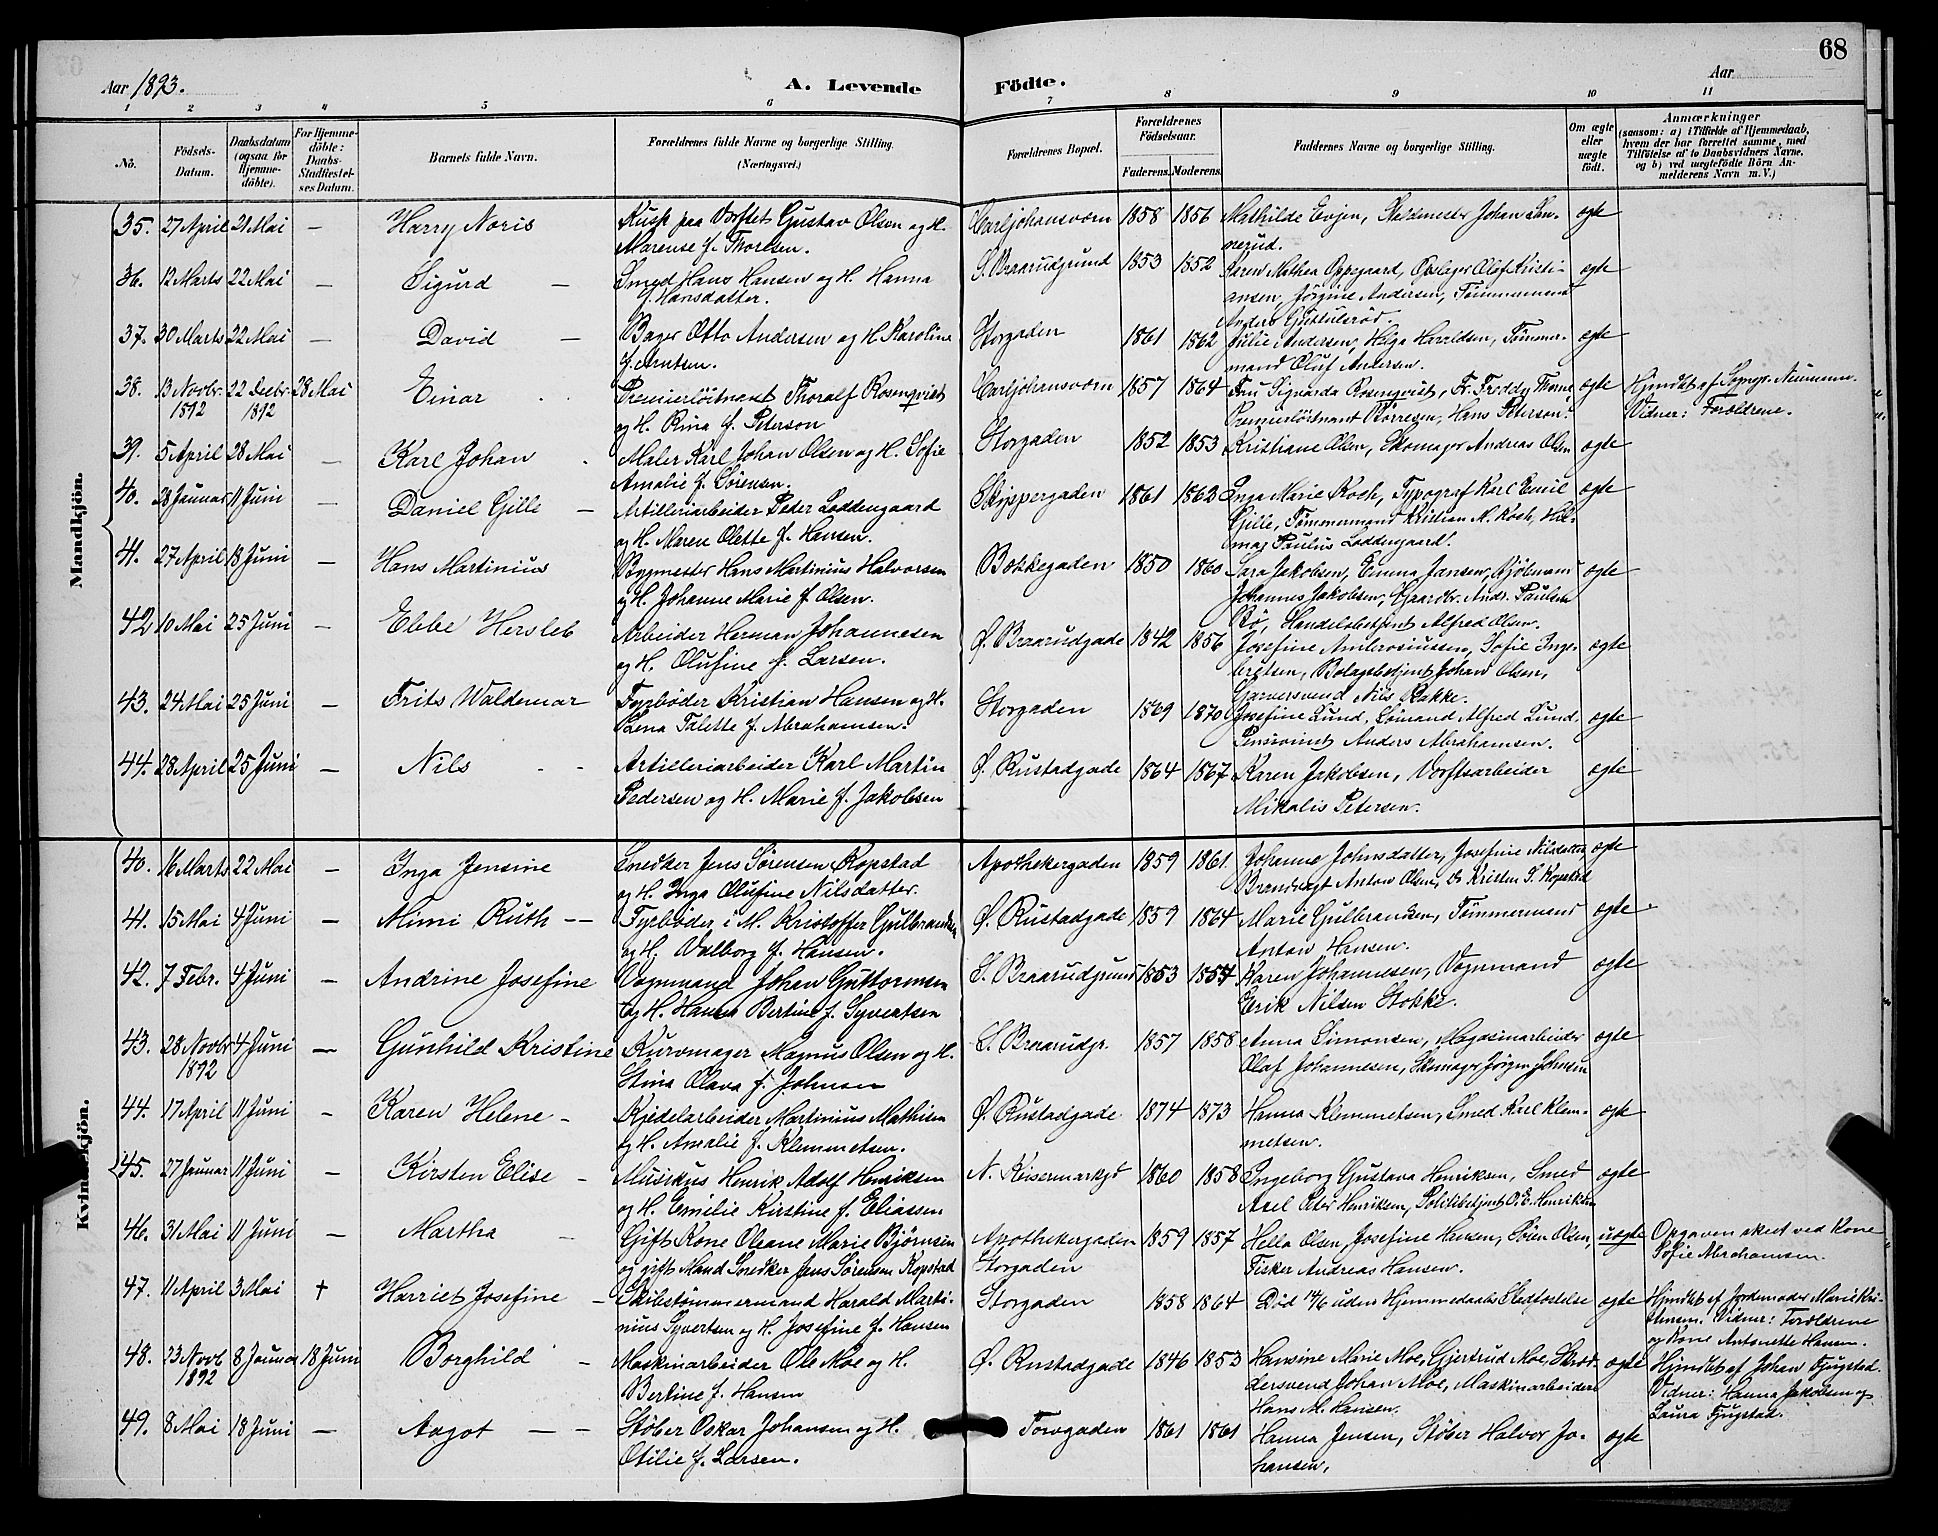 68
Aar 1893.
A. Levende Födte.
Aar
1 2 3 4 5 6 7 8 9 10 11
No.
Födsels-Datum.
Daabsdatum (ogsaa for Hjemme-döbte).
For Hjemme-döbte: Daabs-Stadfæstel-ses Datum.
Barnets fulde Navn.
Forældrenes fulde Navne og borgerlige Stilling. (Næringsvei.)
Forældrenes Bopæl.
Forældrenes Födselsaar.
Faderens. Moderens.
Faddernes Navne og borgerlige Stilling.
Om ægte eller uægte födt.
Anmærkninger
(saasom: a) i Tilfælde af Hjemmedaab, hvem der har forrettet samme, med Tilföielse af to Daabsvidners Navne, og b) ved uægtefödte Börn An-melderens Navn m. V.)
Mandkjön.
35. 27 April 21 Mai — Harry Noris Kusk paa Værftet Gustav Olsen og H. Carljohansværn 1858 1856 Mathilde Evjen, Johan San- ægte
Marense f. Thoresen. nerud.
36. 12 Marts 22 Mai — Sigurd — Smed Hans Hansen og H. Hanna S. Braarudgrund 1853 1852 Karen Mathea Oppegaard, Opslager Olaf Kristi- ægte
f. Hansdatter. ansen, Jørgine Andersen, Tømmermand
Anders
37. 30 Marts 22 Mai — David — Bager Otto Andersen og H. Karoline Storgaden 1861 1862 Julie Andersen, Helga Haraldsen, Tømmer- ægte
f. Arntsen. mand Oluf Andersen.
38. 13 Novbr. 22 Decbr. 28 Mai Einar Premierløitnant Thoralf Rosenqvist Carljohansværn 1857 1864 Fru Signarda Rosenqvist, Fr. Freddy Thorne, ægte Hjmdbt af Sognepr. Neumann.
1892 1892 og H. Rina f. Peterson Premierløitnant Børresen, Hans Peterson. Vidner: Forældrene.
39. 5 April 28 Mai — Karl Johan Maler Karl Johan Olsen og H. Sofie Storgaden 1852 1853 Kristiane Olsen, Skomager Andreas Olsen ægte
Amalie f. Sørensen.
40. 28 Januar 11 Juni — Daniel Gille — Artilleriarbeider Peder Loddengaard Skippergaden 1861 1863 Inga Marie Koch, Typograf Karl Emil ægte
og H. Maren Olette f. Hansen. Gille, Tømmermand Kristian M. Koch, Hil-
mar Paulus Loddengaard.
41. 27 April 18 Juni — Hans Martinius Bygmester Hans Martinius Halvorsen Bakkegaden 1850 1860 Sara Jakobsen, Emma Jansen, Kjøbmand ægte
og H. Johanne Marie f. Olsen. Johannes Jakobsen, Gaardbr. Andr. Paulsen
Bø, Handelsbetjent Alfred Olsen.
42 10 Mai 25 Juni — Ebbe Hersleb Arbeider Herman Johannesen Ø. Braarudgade 1842 1856 Josefine Ambrosiussen, Sofie Inge- ægte
og H. Olufine f. Larsen. bretsen, Bolagsbetjent Johan Olsen,
Garversvend Nils Bakke.
43. 24 Mai 25 Juni — Frits Waldemar Fyrbøder Kristian Hansen og H. Storgaden 1869 1870 Josefine Lund, Sømand Alfred Lund. ægte
Lena Talette f. Abrahamsen. Pensionist Anders Abrahamsen.
44. 28 April 25 Juni — Nils Artilleriarbeider Karl Martin Ø. Rustadgade 1864 1867 Karen Jakobsen, Værftsarbeider ægte
Pedersen og H. Marie f. Jakobsen Mikalis Petersen.
Kvindekjön.
40. 16 Marts 22 Mai — Inga Jensine Snedker Jens Sørensen Kopstad Apothekergaden 1859 1861. Johanne Johnsdatter, Josefine Nilsdatter, ægte
og H. Inga Olufine Nilsdatter. Brandvagt Anton Olsen, Kristen S. Kopstad
41. 15 Mai 4 Juni — Mimi Ruth — Fyrbøder i M. Kristoffer Gulbrandsen Ø. Rustadgade 1859 1864 Marie Gulbrandsen, Tømmermand ægte
og H. Valborg f. Hansen. Anton Hansen.
42. 7 Febr. 4 Juni — Andrine Josefine Vognmand Johan Guttormsen S. Braarudgrund 1853 1857 Karen Johannesen, Vognmand ægte
og H. Hanna Bertine f. Syvertsen Erik Nilsen Stokke.
43. 28 Novbr 4 Juni — Gunhild Kristine Kurvmager Magnus Olsen og H. S. Braarudgr. 1857 1858 Anna Simonsen, Magasinarbeider ægte
1892 Stina Olava f. Johnsen Olaf Johannesen, Skomager Jørgen Johnsen
44. 17 April 11 Juni — Karen Helene — Kjedelarbeider Martinius Mathisen Ø. Rustadgade 1874 1873 Hanna Klemmetsen, Smed Karl Klem- ægte
og H. Amalie f. Klemmetsen. metsen.
45. 27 Januar 11 Juni — Kirsten Elise — Musikus Henrik Adolf Henriksen N. Keisermarkgd 1860 1858 Ingeborg Gustava Henriksen, Smed ægte
og H. Emilie Kirstine f. Eliassen Axel Peter Henriksen, Politibetjent O. E. Henriksen
46. 31 Mai 11 Juni — Martha — Gift Kone Oleane Marie Bjørnsen Apothekergaden 1859 1857 Hella Olsen, Josefine Hansen, Søren Olsen, uægte Opgaven skeet ved Kone
og gift Mand Snedker Jens Sørensen Kopstad Storgaden Fisker Andreas Hansen. Sofie Abrahamsen.
47. 11 April 3 Mai † Harriet Josefine — Skibstømmermand Harald Marti- Storgaden 1858 1864 Død 14/6 uden Hjemmedaabs Stadfæstelse ægte Hjmdbt. af Jordemoder Marie Kri-
nius Syvertsen og H. Josefine f. Hansen stensen. Vidner: Forældrene
og Kone Antonette Hansen.
48. 23 Novb 8 Januar 18 Juni Borghild — Maskinarbeider Ole Moe og H. Ø. Rustadgade 1846 1853 Hansine Marie Moe, Gjertrud Moe, Skræd- ægte Hjmdbt. af Johan Fjugstad.
1892 Bertine f. Hansen dersvend Johan Moe, Maskinarbeider Vidner: Hanna Jakobsen og
Hans M. Hansen. Laura Fjugstad.
49. 8 Mai 18 Juni — Aagot — Støber Oskar Johansen og H. Torvgaden 1861 1861 Hanna Jensen, Støber Halvor Jo- ægte
Otilie f. Larsen. hansen,